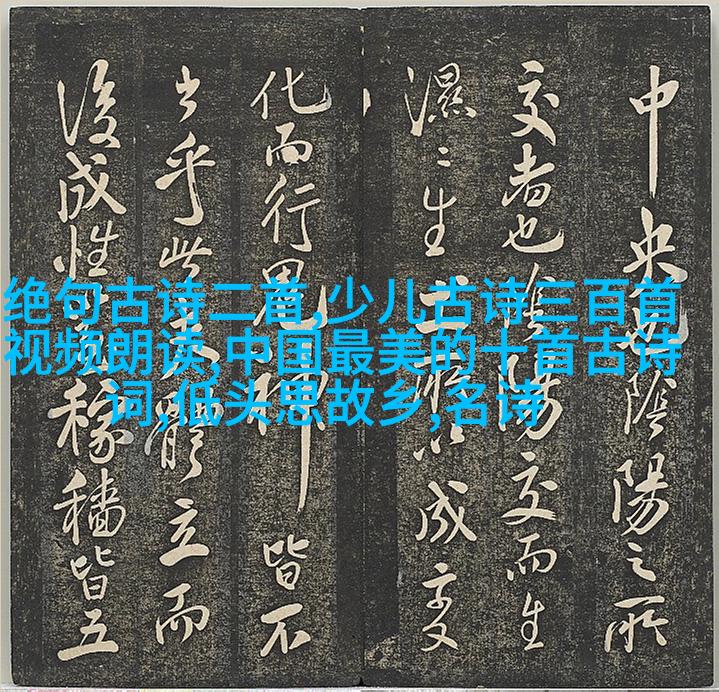 中央為陰陽之所
交者也陰陽交而生
濕〻生土以成
化而行鬼神皆不
乎此大體立而
後成性稼穡皆五
绝句古诗二首,少儿古诗三百首
视频朗读,中国最美的十首古诗
词,低头思故乡,名诗